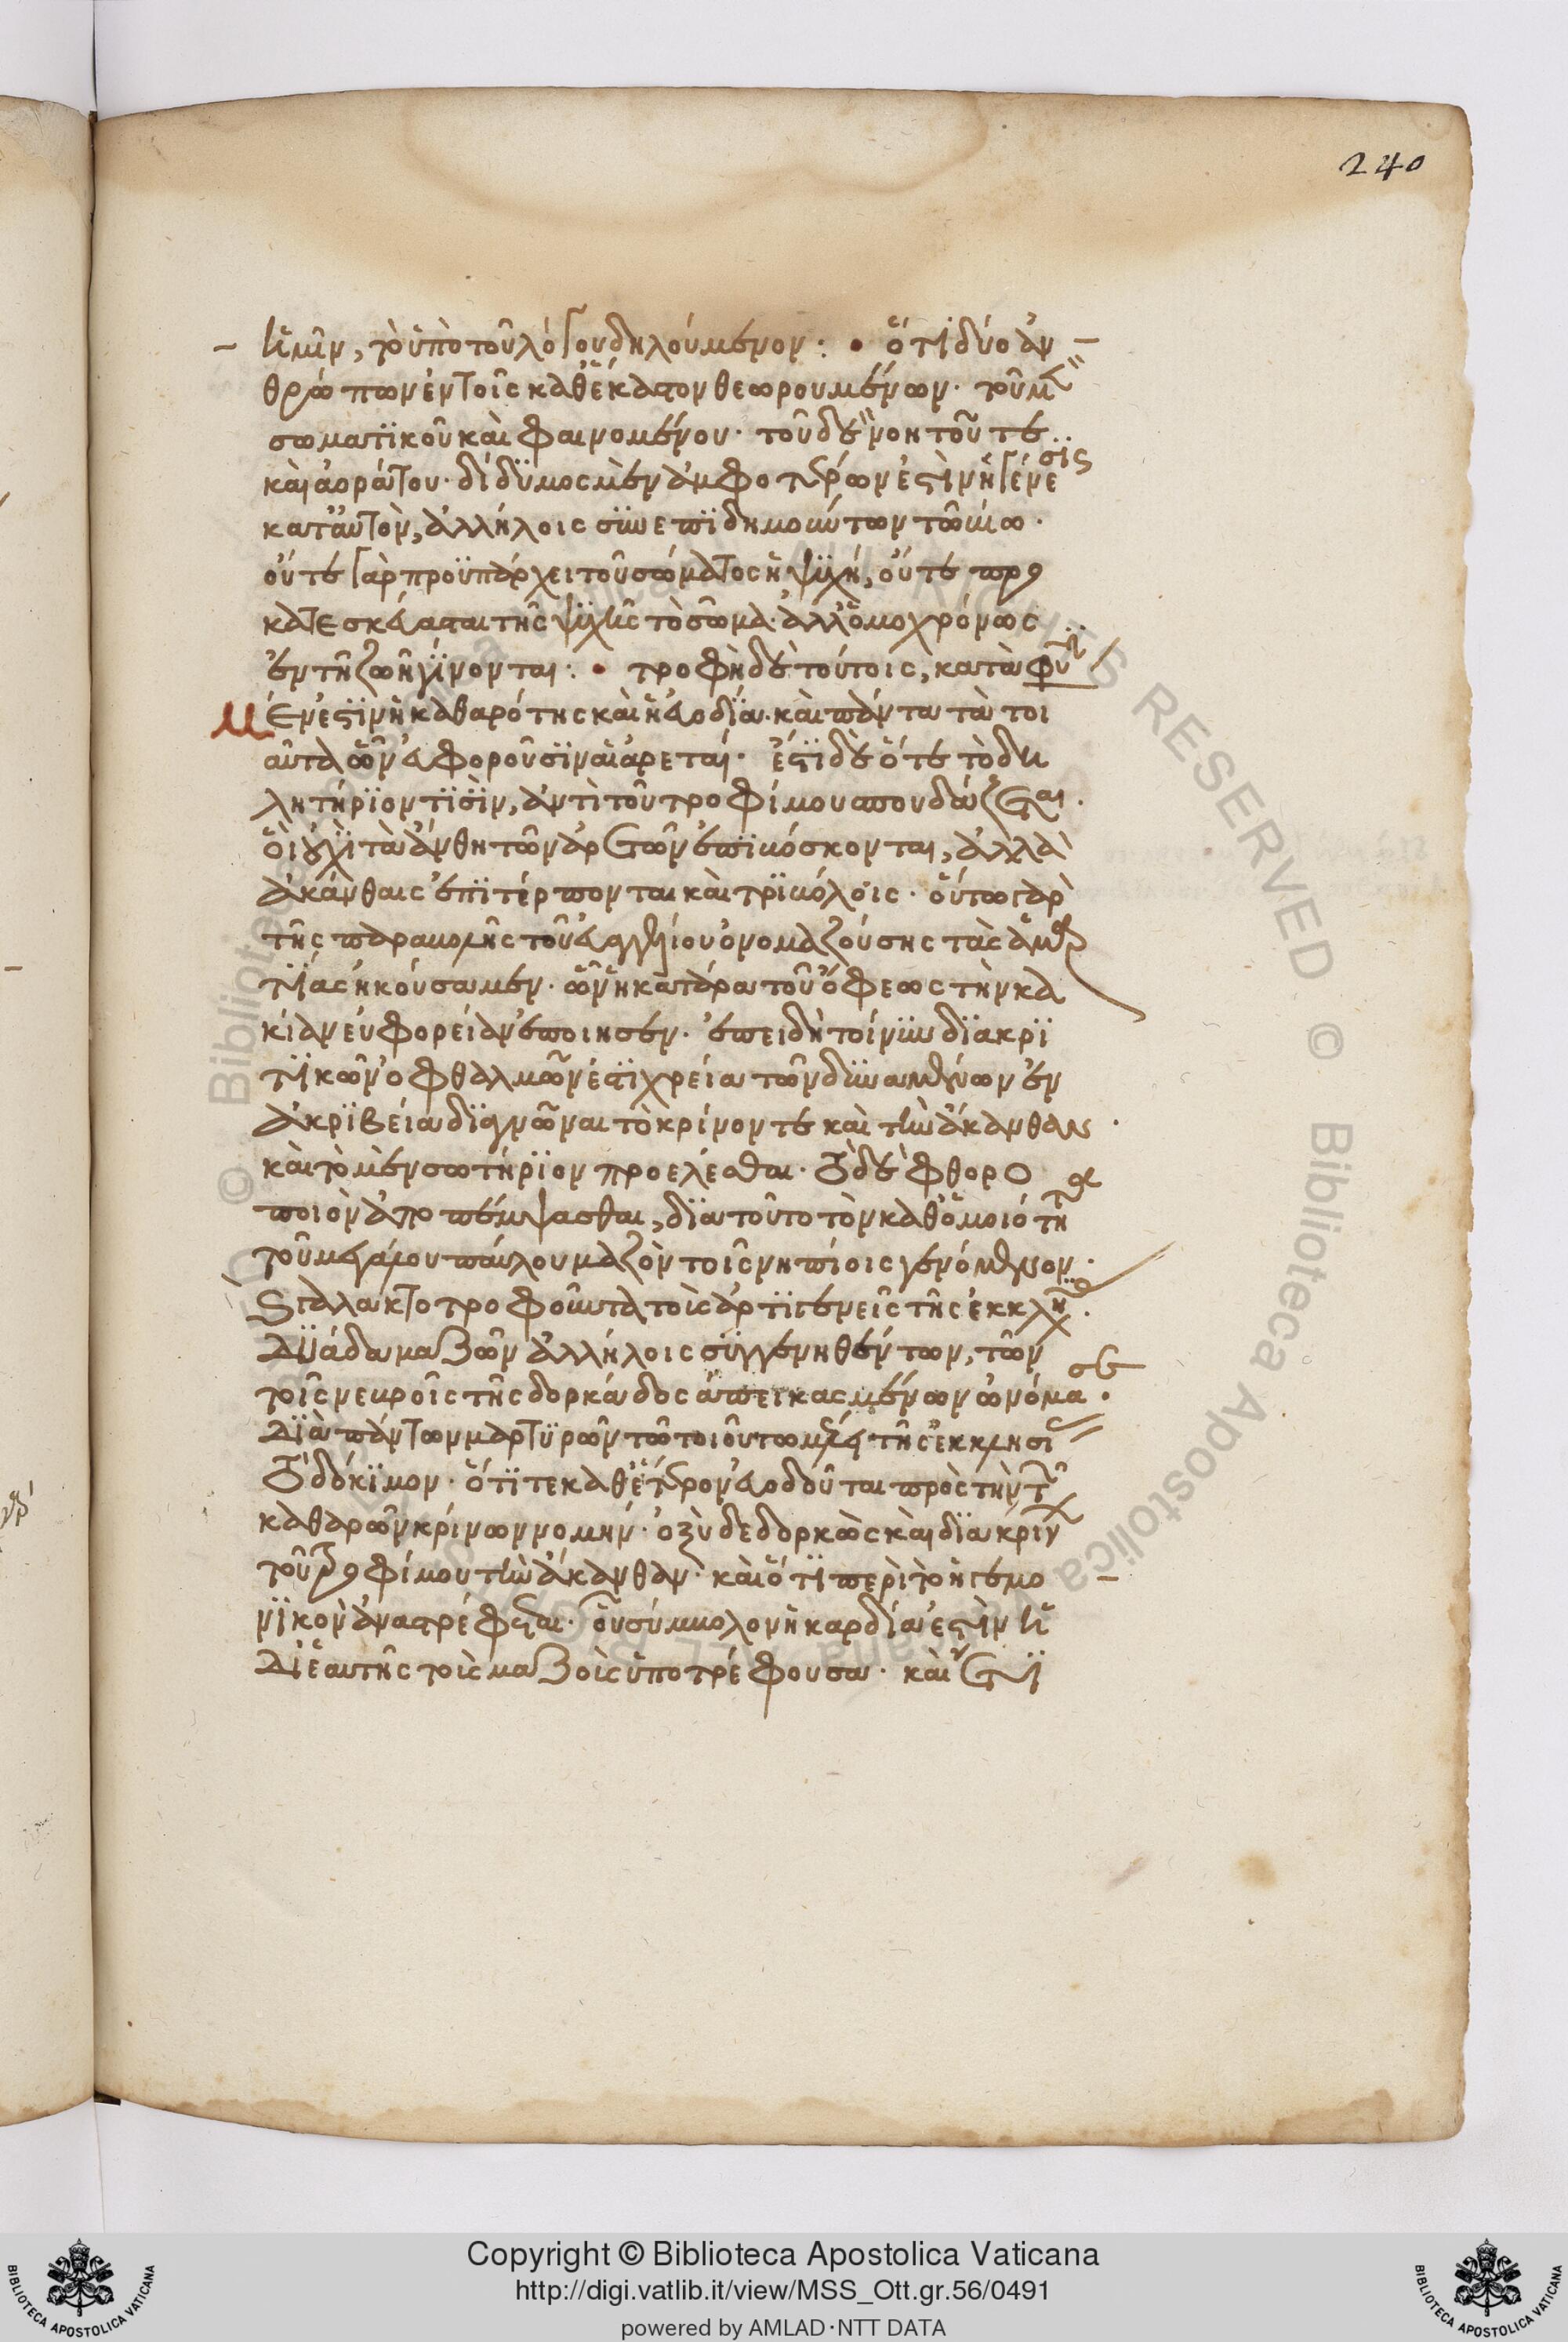 240
ἡμῖν, τὸ ὑπὸ τοῦ λόγου δηλούμενον : • ὅτι δύο ἀν
θρώπων ἐν τοῖς καθέκαστον θεωρουμένων · τοῦ μὲν
σωματϊκοῦ καὶ φαινομένου · τοῦ δὲ νοητοῦ τε
καὶ ἀοράτου · δίδϋμος μὲν ἀμφοτέρων ἐστὶν ἡ γένεσις
κατ' αὐτὸν, ἀλλήλοις συνεπϊδημούντων τῶ βίω ·
οὔτε γὰρ προϋπάρχει τοῦ σώματος ἡ ψϋχή, οὔτε προ
κατεσκεύασται τῆς ψϋχῆς τὸ σῶμα · ἀλλ' ὁμοχρόνως
ἐν τῆ ζωῆ γίνονται : • τροφὴ δὲ τούτοις, κατὰ φύσιν
μέν ἐστϊν ἡ καθαρότης καὶ ἡ εὐοδία · καὶ πάντα τὰ τοι
αῦτα ὧν εὐφοροῦσϊν αἱ ἀρεταί · ἔστϊ δὲ ὅτε τὸ δη
λητήρϊον τϊσὶν, ἀντὶ τοῦ τροφίμου σπουδάζεται ·
οἳ οὐχὶ τὰ ἄνθη τῶν ἀρετῶν ἐπϊβόσκονται, ἀλλὰ
ἀκάνθαις ἐπϊτέρπονται καὶ τρϊβόλοις · οὕτω γὰρ
τῆς παραβολῆς τοῦ εὐαγγελίου ὀνομαζούσης τὰς ἁμαρ
τϊας ἠκούσαμεν · ὧν ἡ κατάρα τοῦ ὄφεως τὴν κα
κίαν εὐφορείαν ἐποιησεν · ἐπειδὴ τοίνϋν δϊακρϊ
τϊκῶν ὀφθαλμῶν ἐστϊ χρεία τῶν δϋναμένων ἐν
ἀκρϊβεία δϊαγνῶναι τὸ κρίνον τε καὶ τὴν ἄκανθαν ·
καὶ τὸ μὲν σωτήρϊον προελέσθαι · τὸ δὲ φθορο
ποιὸν ἀποπέμψασθαι, δϊα τοῦτο τὸν καθ' ὁμοιότητα
τοῦ μεγάλου παύλου μαζὸν τοῖς νηπίοις γενόμενον ·
γαλακτοτροφοῦντα τοῖς ἀρτϊγενεῖς τῆς ἐκκλησίας ·
δϋάδα μαζῶν ἀλλήλοις σϋγγενηθέντων, τῶν
τοῖς νεβροῖς τῆς δορκάδος ἀπεικασμένων ὠνόμασε ·
δϊὰ πάντων μαρτϋρῶν τῶ τοιούτω μέλει τῆς ἐκκλησίας
τὸ δόκϊμον · ὅτϊ τε καθ' ἑκάτερον εὐοδοῦται πρὸς τὴν τῶν
καθαρῶν κρίνων νομήν · ὀξὺ δεδορκὼς καὶ δϊακρίνων
τοῦ τροφίμου τὴν ἄκανθαν · καὶ ὅτϊ περὶ τὸ ἡγεμο
νϊκὸν ἀναστρέφεται · οὗ σύμβολον ἡ καρδία ἐστὶν ἡ
δϊ' ἑαυτῆς τοῖς μαζοῖς ὑποτρέφουσα · καὶ ἔτϊ
Copyright © Biblioteca Apostolica Vaticana
http://digi.vatlib.it/view/MSS_Ott.gr.56/0491
powered by AMLAD·NTT DATA